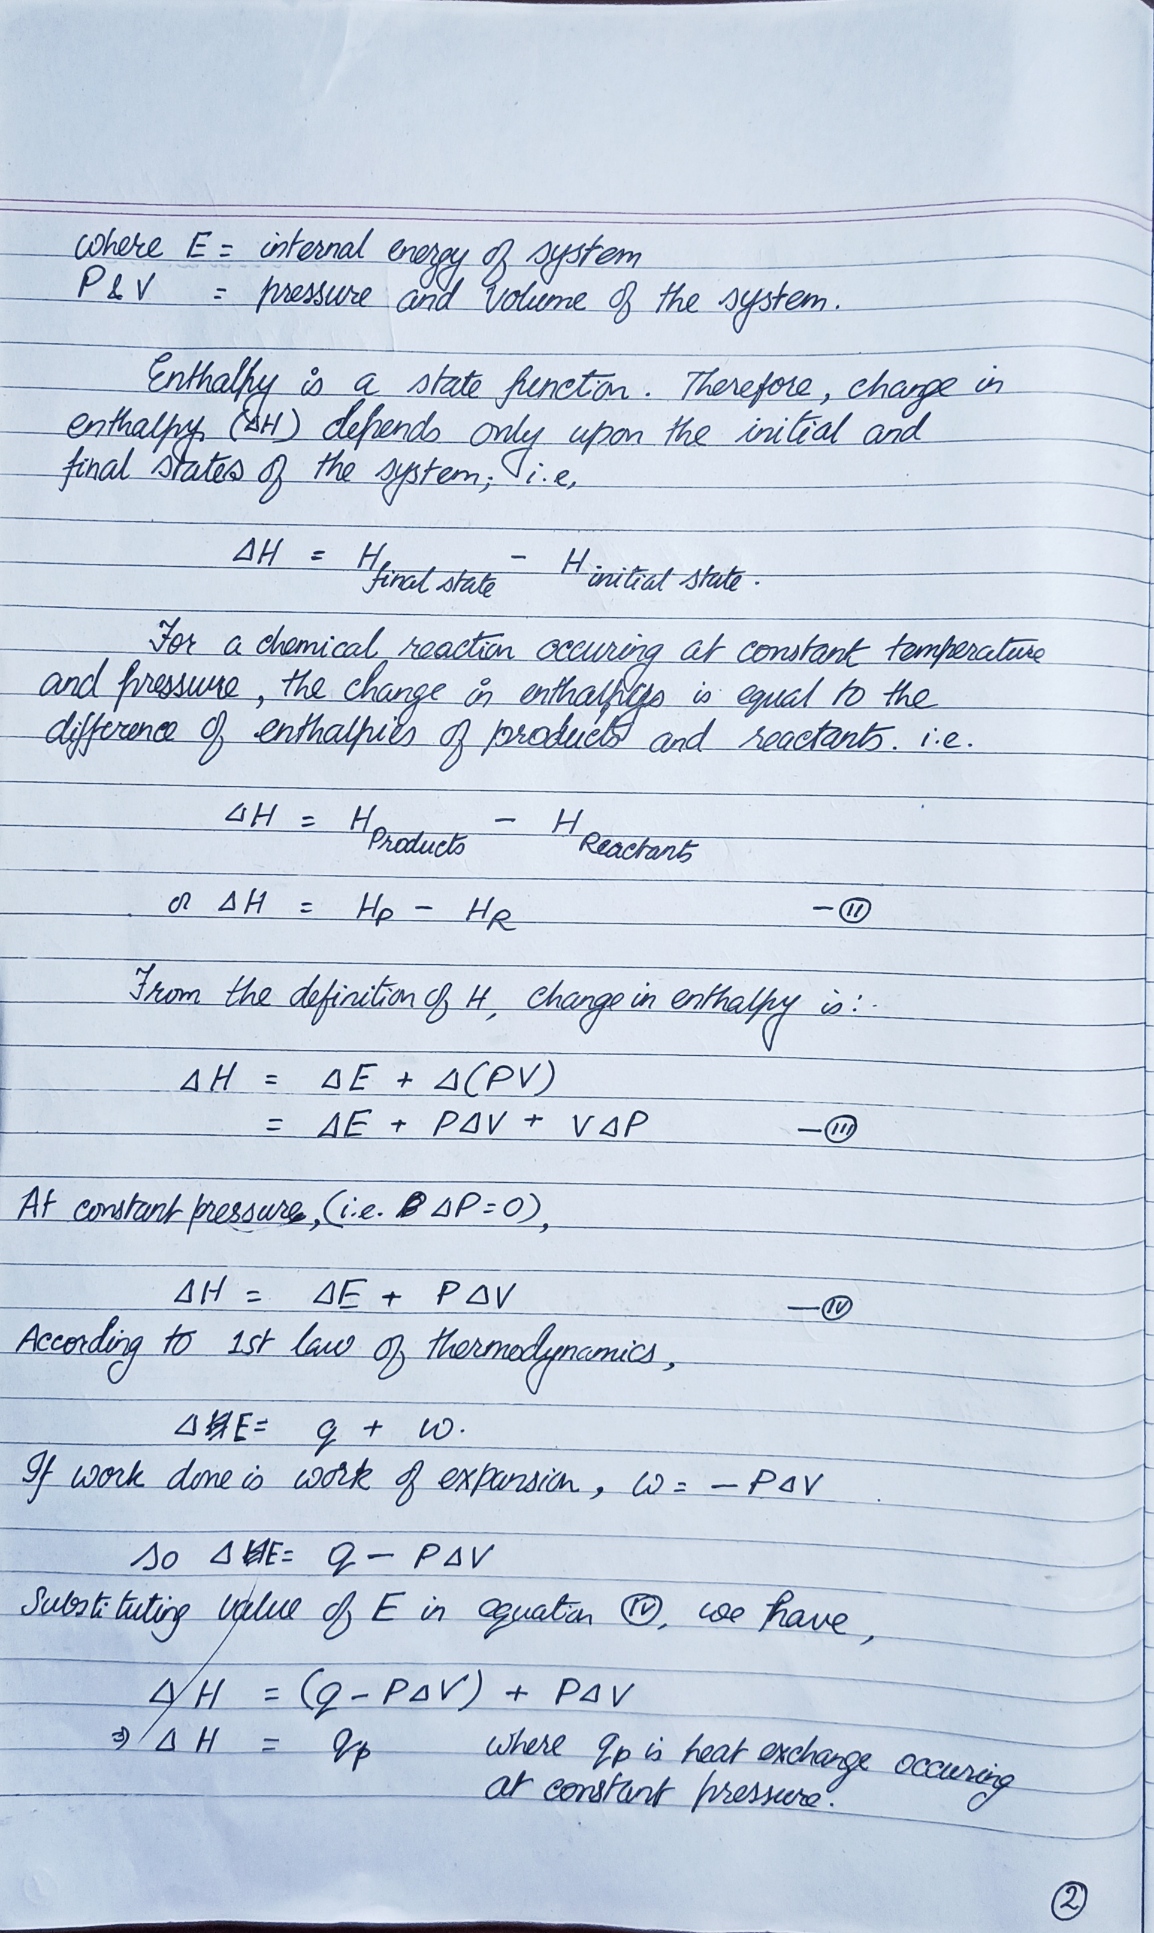 where E = internal energy of system
P & V = pressure and volume of the system.
Enthalpy is a state function. Therefore, change in
enthalpy, (ΔH) depends only upon the initial and
final states of the system; i.e,
ΔH = H final state - H initial state.
For a chemical reaction occuring at constant temperature
and pressure, the change in enthalpy is equal to the
difference of enthalpies of products and reactants. i.e.
ΔH = H Products - H Reactants
or ΔH = HP - HR - II
From the definition of H, change in enthalpy is:-
ΔH = ΔE + Δ(PV)
= ΔE + PΔV + VΔP - III
At constant pressure, (i.e. ΔP=0),
ΔH = ΔE + PΔV - IV
According to 1st law of thermodynamics,
ΔE = q + w.
If work done is work of expansion, w = - PΔV
so ΔE = q - PΔV
Substituting value of E in equation IV, we have,
ΔH = (q - PΔV) + PΔV
⇒ ΔH = qp where qp is heat exchange occuring
at constant pressure.
2